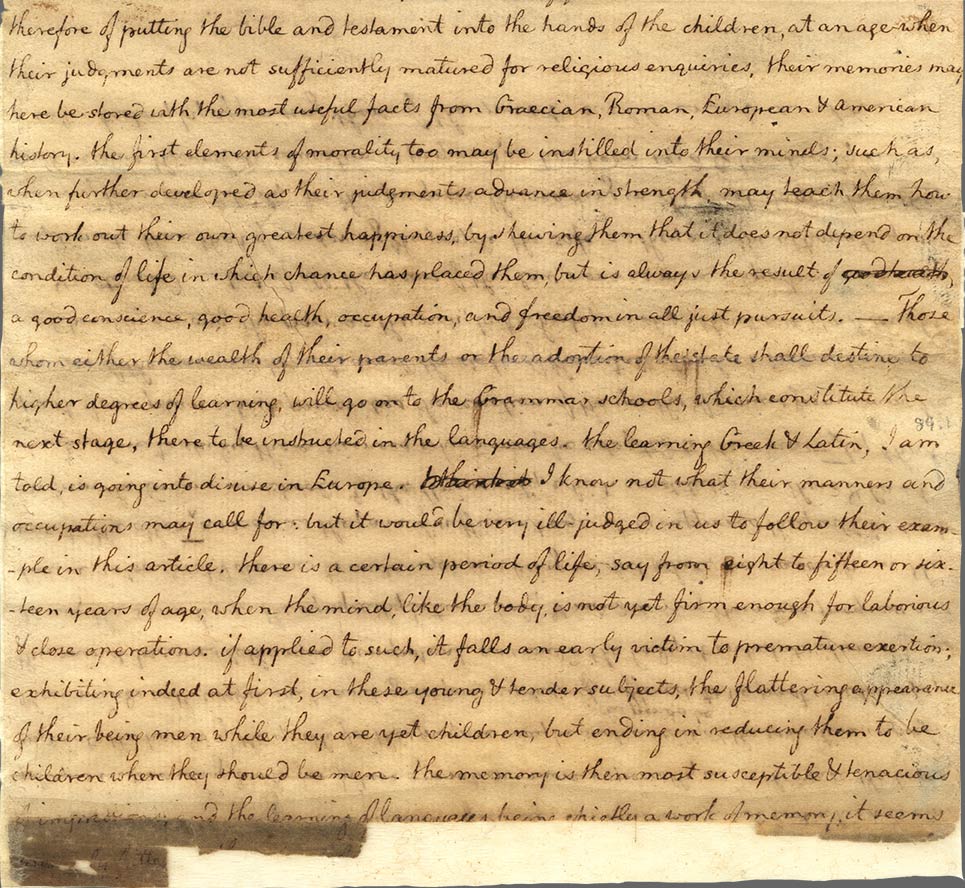 therefore of putting the bible and testament into the hands of the children, at an age when
their judgments are not sufficiently matured for religious enquiries, their memories may
here be stored with the most useful facts from Graecian, Roman, European & American
history. the first elements of morality too may be instilled into their minds; such as,
when further developed as their judgments advance in strength, may teach them how
to work out their own greatest happiness, by shewing them that it does not depend on the
condition of life in which chance has placed them, but is always the result of good health,
a good conscience, good health, occupation, and freedom in all just pursuits. — Those
whom either the wealth of their parents or the adoption of the state shall destine to
higher degrees of learning, will go on to the Grammar schools, which constitute the
next stage, there to be instructed in the languages. the learning Greek & Latin, I am
told, is going into disuse in Europe. I know not what their manners and
occupations may call for: but it would be very ill-judged in us to follow their exam-
-ple in this article. there is a certain period of life, say from eight to fifteen or six-
-teen years of age, when the mind, like the body, is not yet firm enough for laborious
& close operations. if applied to such, it falls an early victim to premature exertion;
exhibiting indeed at first, in these young & tender subjects, the flattering appearance
of their being men while they are yet children, but ending in reducing them to be
children when they should be men. the memory is then most susceptible & tenacious
of impressions; and the learning of languages being chiefly a work of memory, it seems